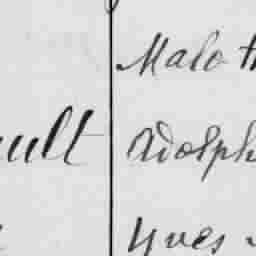 Malo
ault Adolph
Yves